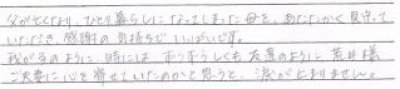 父が亡くなり、ひとり暮らしになってしまった母を、あたたかく見守って
いただき、感謝の気持ちでいっぱいです。
我が子のように、時には ずうずうしくも 友達のように 荒井様
ご夫妻に心を寄せていたのかと思うと、涙が止まりません。